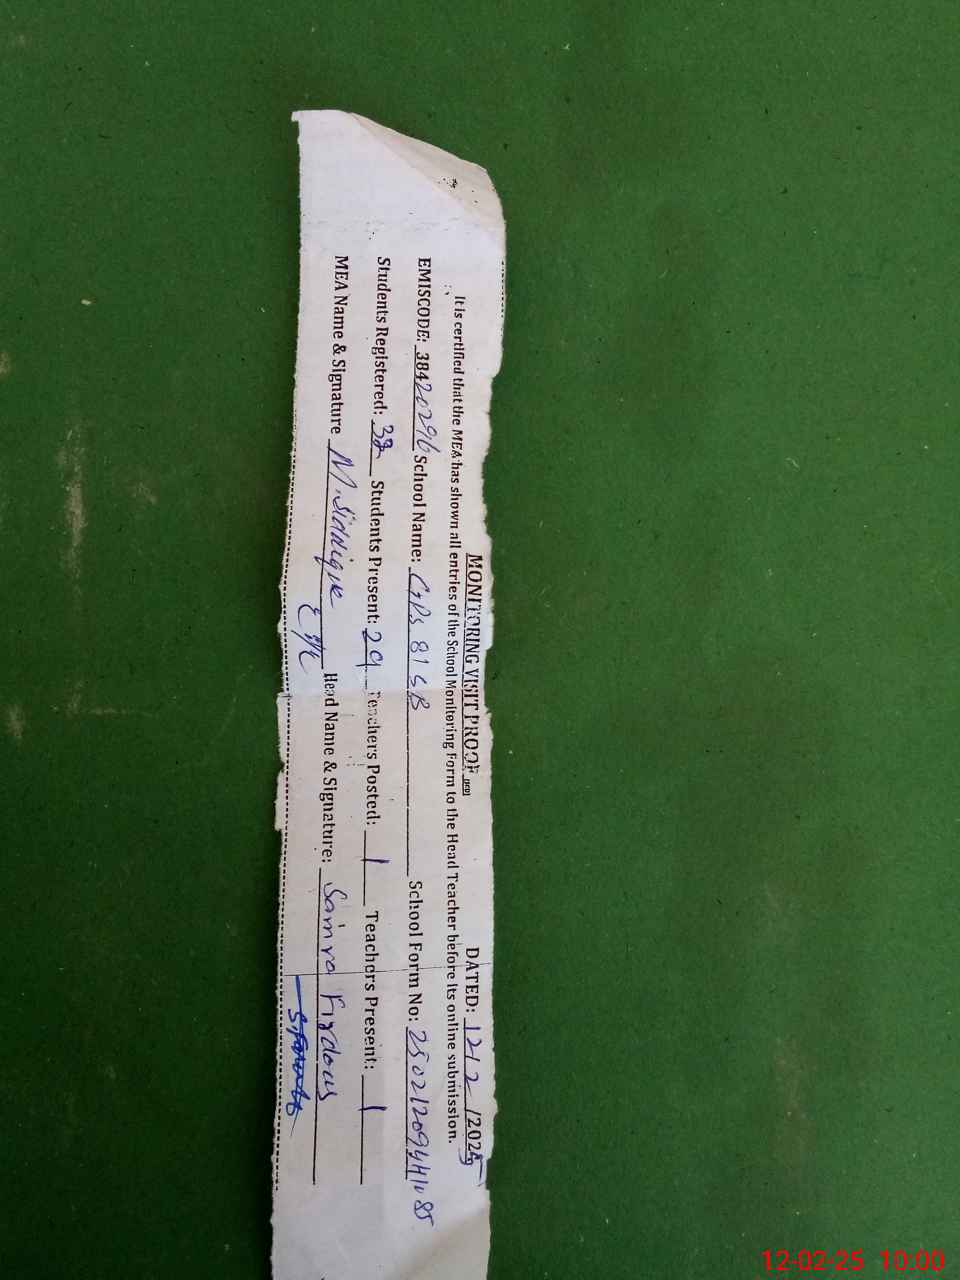 MONITORING VISIT PROOF DATED: 12/2/2025
It is certified that the MEA has shown all entries of the School Monitoring Form to the Head Teacher before its online submission.
EMISCODE: 38420296 School Name: GPS 81 SB School Form No:
Students Registered: Students Present: 29 Teachers Posted: 1 Teachers Present: 1
MEA Name & Signature M. Siddique Head Name & Signature: Saimra Firdous
12-02-25 10:00